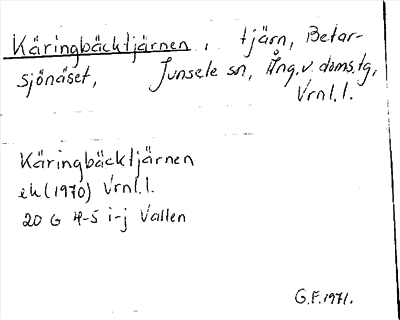 Käringbäcktjärnen, tjärn, Betar-
sjönäset, Junsele sn, Ång. v. doms.tg,
Vrnl.l.
Käringbäcktjärnen
ek (1970) Vrnl.l.
20 G 4-5 i-j Vallen
G.F. 1971.